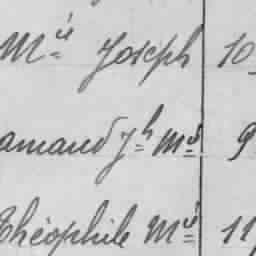 Mᵘ Joseph 10
amand Jʰ Mᵘ 9
Théophile Mᵘ 11